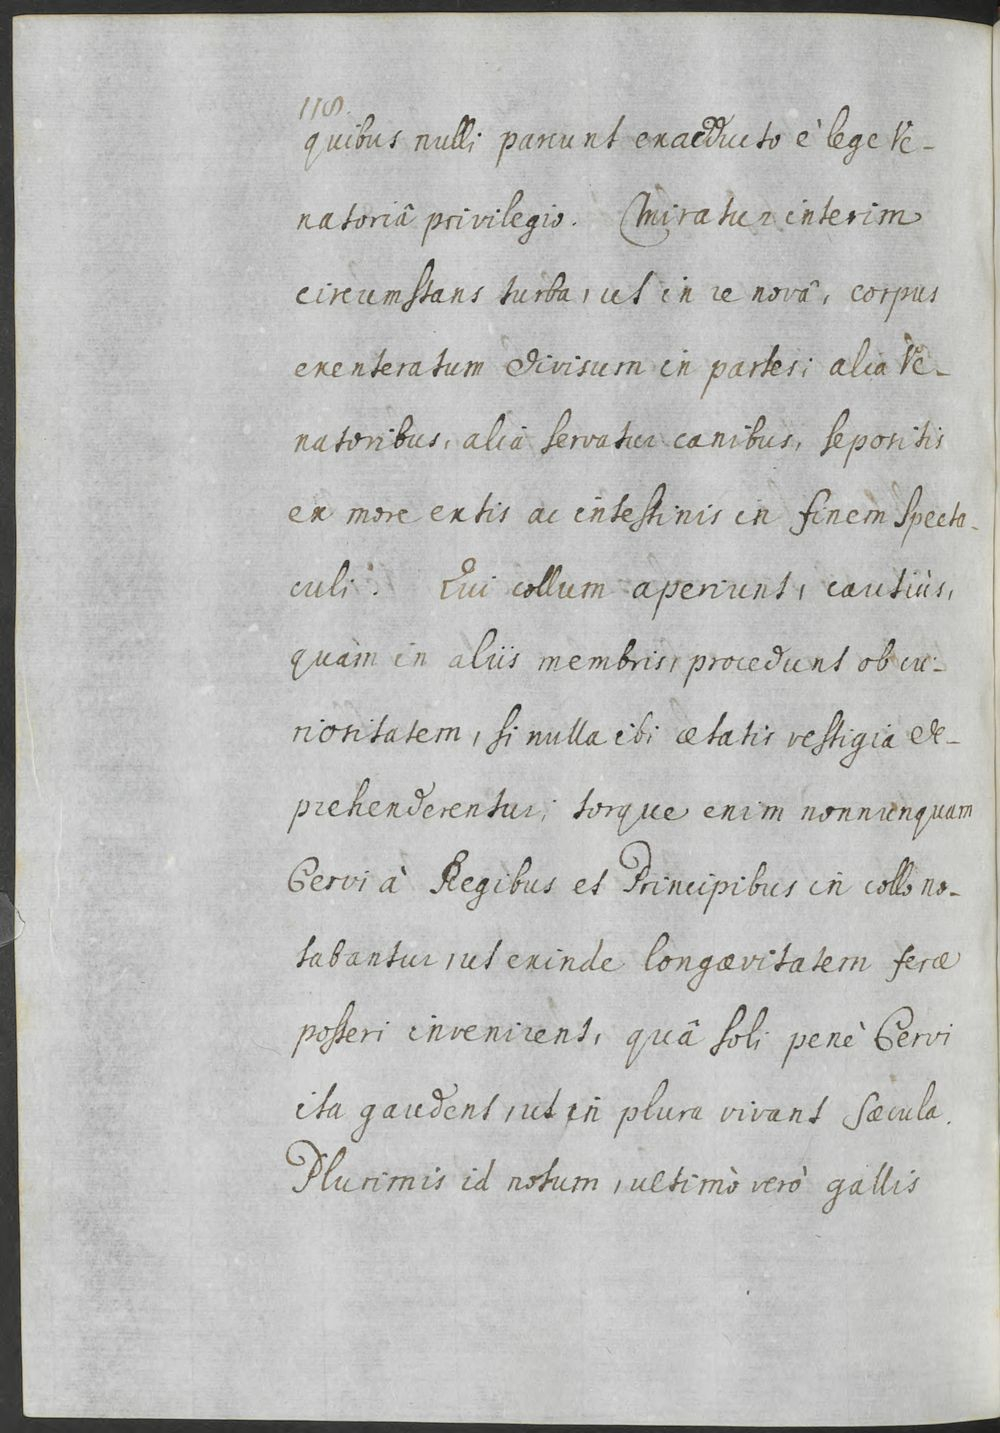 118.
quibus nulli parcunt exadducto è lege Ve-
natoriâ privilegio. Miratur interim
circumstans turba, ut in re novâ, corpus
exenteratum divisum in partes; alia Ve-
natoribus, alia servatur canibus, sepositis
ex more extis ac intestinis in finem specta-
culi. Qui collum aperiunt, cautiùs,
quàm in aliis membris, procedunt ob cu-
riositatem, si nulla ibi ætatis vestigia de-
prehenderentur; torque enim nonnunquam
Cervi à Regibus et Principibus in collo no-
tabantur, ut exinde longævitatem feræ
posteri invenirent, quâ soli penè Cervi
ita gaudent, ut in plura vivant sæcula.
Plurimis id notum, ultimò verò gallis